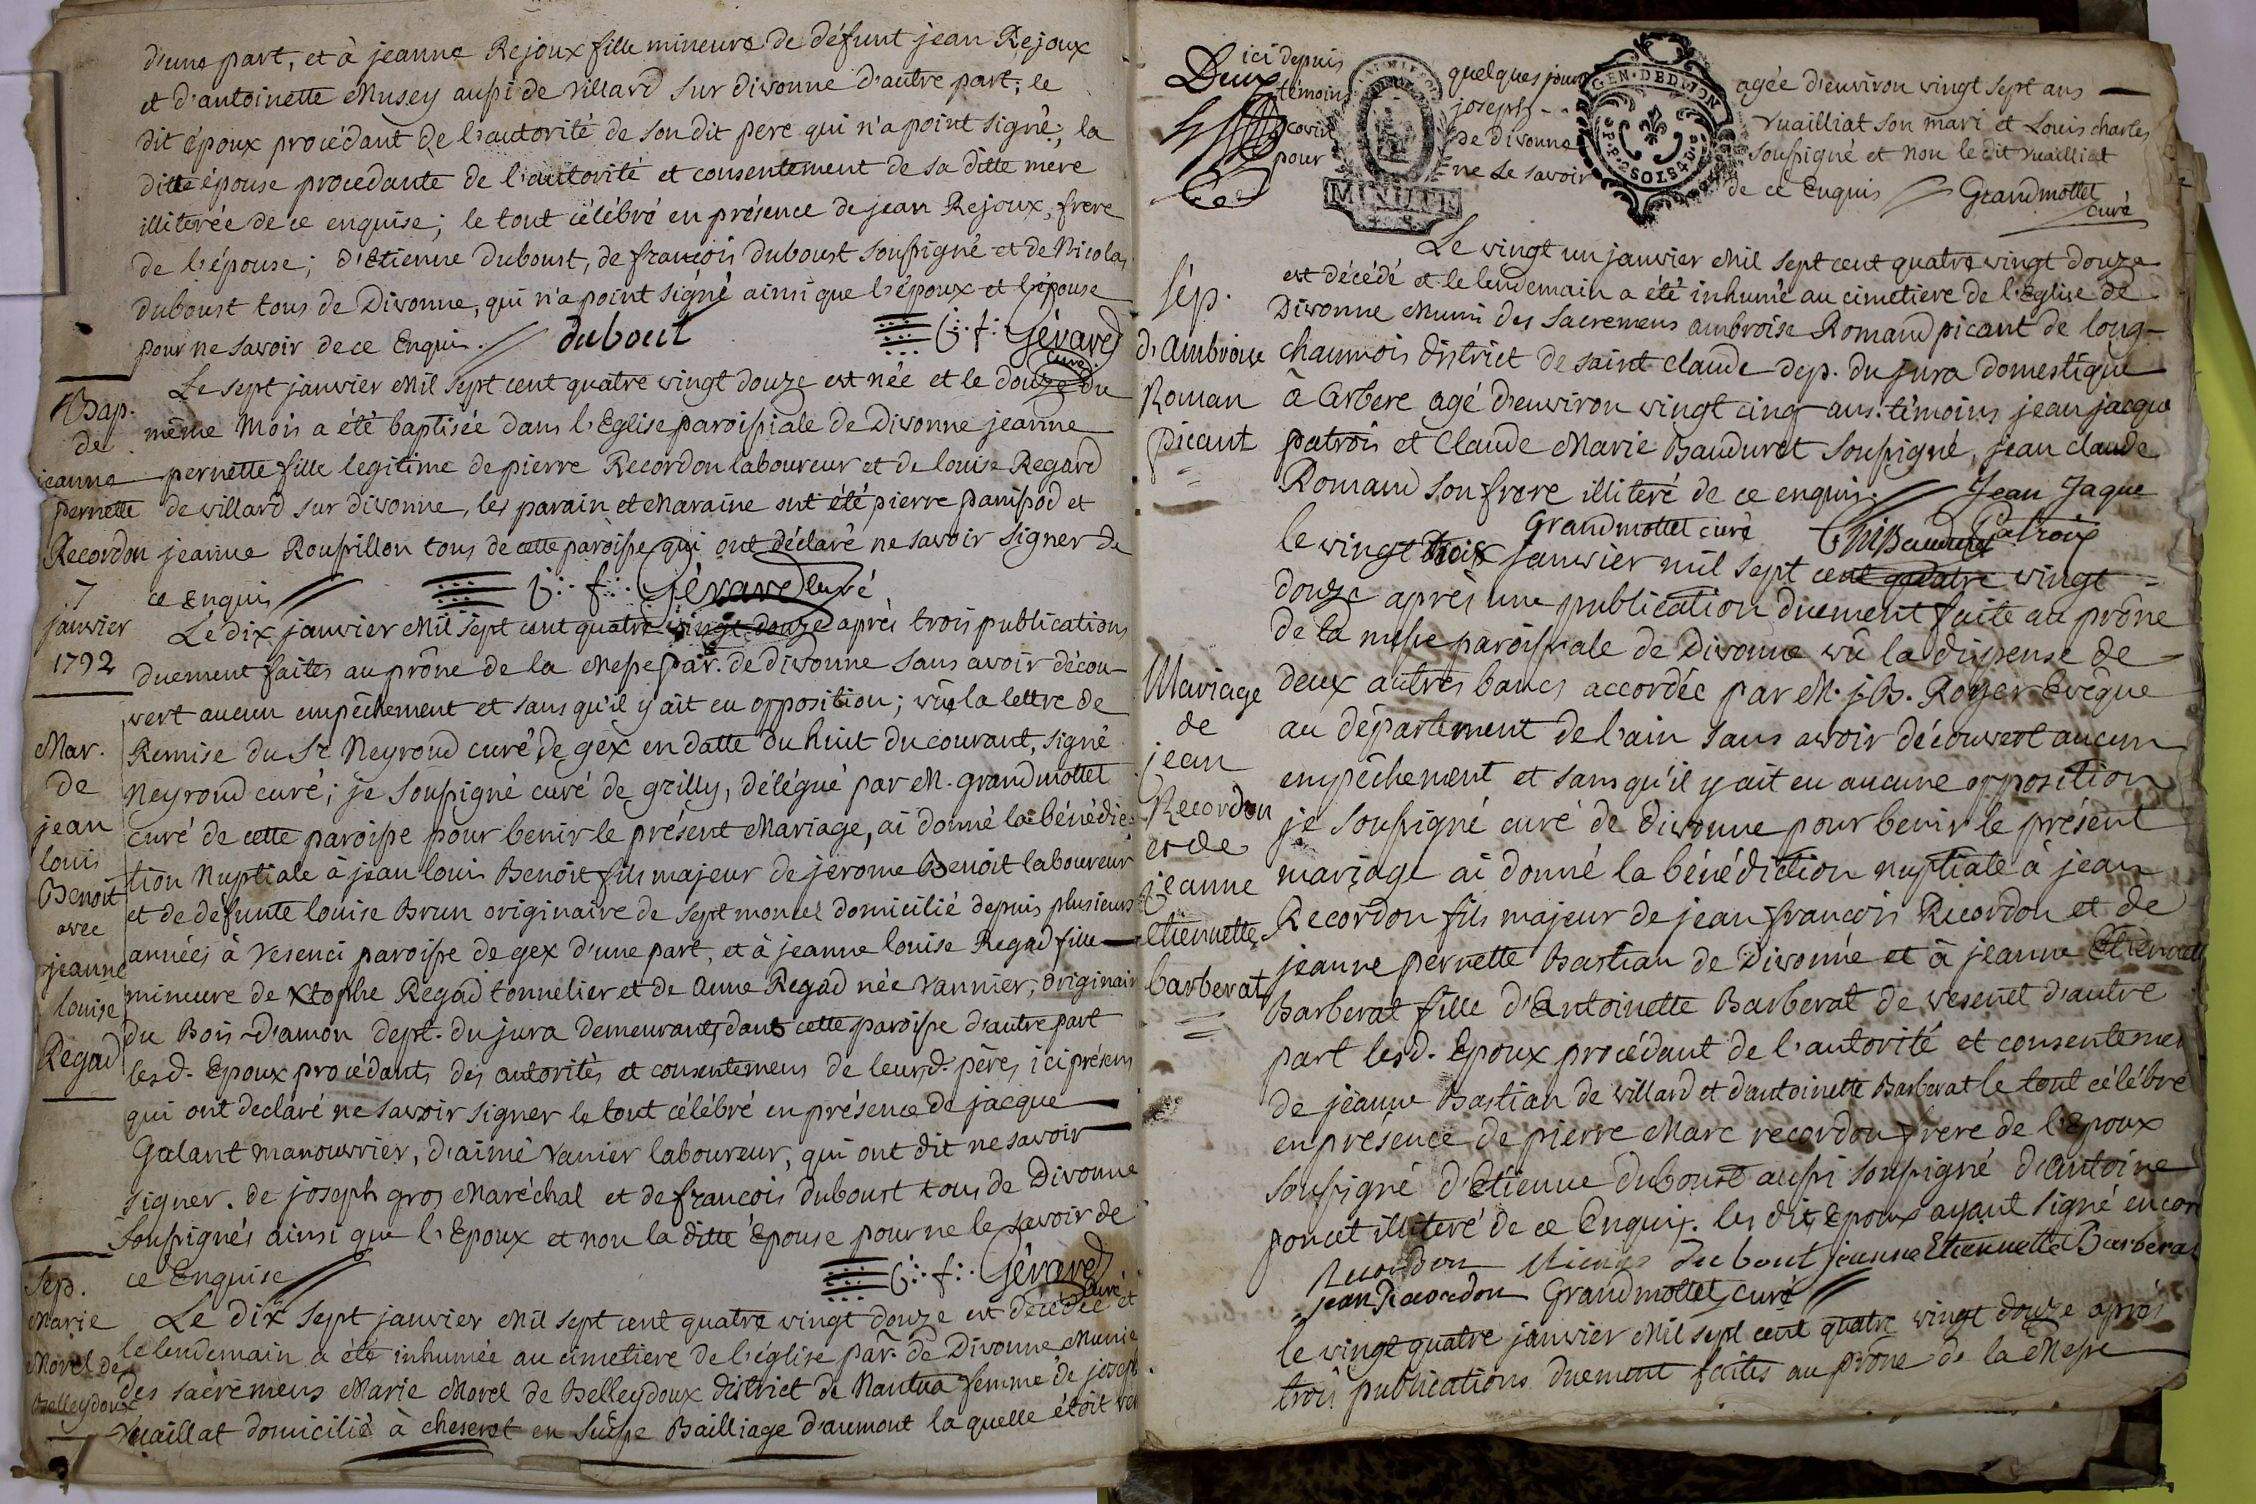 d'une part, et à jeanne Rejoux fille mineure de défunt jean Rejoux
et d'antoinette Musey aussi de villard sur divonne d'autre part; le
dit époux procédant de l'autorité de son dit pere qui n'a point signé; la
ditte épouse procedante de l'autorité et consentement de sa ditte mere
illiterée de ce enquise; le tout célébré en présence de jean Rejoux, frere
de l'épouse; d'Etienne duboust, de françois duboust soussigné et de Nicolas
duboust tous de Divonne, qui n'a point signé ainsi que l'époux et l'épouse
pour ne savoir de ce Enquis. dubout j: f: Gérard
curé
Bap.
de
jeanne
pernette
Recordon
7
janvier
1792
Le sept janvier Mil sept cent quatre vingt douze est née et le douze du
même Mois a été baptisée dans l'Eglise paroissiale de Divonne jeanne
pernette fille legitime de pierre Recordon laboureur et de louise Regard
de villard sur divonne, les parain et Maraine ont été pierre panissod et
jeanne Roussillon tous de cette paroisse qui ont déclaré ne savoir signer de
ce Enquis j: f: Gérard curé
Mar.
de
jean
louis
Benoit
avec
jeanne
louise
Regad
Le dix janvier Mil sept cent quatre vingt douze après trois publications
duement faites au prône de la Messe par. de divonne sans avoir décou-
vert aucun empêchement et sans qu'il y ait eu opposition; vû la lettre de
Remise du Sr Neyroud curé de gex en datte du huit du courant, signé
Neyroud curé; je soussigné curé de grilly, délégué par M. grandmottet
curé de cette paroisse pour benir le présent Mariage, ai donné la bénédic-
tion Nuptiale à jean louis Benoit fils majeur de jerome Benoit laboureur
et de défunte louise Brun originaire de septmoncel domicilié depuis plusieurs
années à Vesenci paroisse de gex d'une part, et à jeanne louise Regad fille
mineure de Xtophe Regad tonnelier et de Anne Regad née vannier, originair
du Bois-d'amon dept. du jura demeurants dans cette paroisse d'autre part
lesd. Epoux procédants des autorités et consentemens de leursd. pères, ici présens
qui ont declaré ne savoir signer le tout célébré en présence de jacque
Galant manouvrier, d'aimé vanier laboureur, qui ont dit ne savoir
signer. de joseph gros Maréchal et de françois duboust tous de Divonne
soussignés ainsi que l'Epoux et non la ditte Epouse pour ne le savoir de
ce Enquise j: f: Gérard
curé
Sep.
Marie
Morel de
Belleydoux
Le dix sept janvier Mil sept cent quatre vingt douze est décédée et
le lendemain a été inhumée au cimetiere de l'église par. de Divonne Munie
des sacremens Marie Morel de Belleydoux district de Nantua femme de joseph
Vuaillat domicilié à cheseret en suisse Bailliage d'aumont la quelle étoit
Deux
GEN. DE DIJON
SOLS 4 D
ici depuis quelques jours agée d'environ vingt sept ans
témoins joseph Vuailliat son mari et Louis charles
de divonne soussigné et non le dit vuailliat
pour ne le savoir de ce Enquis Grandmottet
curé
Sép.
d'Ambroise
Roman
picant
Le vingt un janvier Mil sept cent quatre vingt douze
est décédé et le lendemain a été inhumé au cimetiere de l'Eglise de
Divonne Muni des sacremens ambroise Romand picant de long-
chaumois district de saint claude dep. du jura domestique
à Arbere agé d'environ vingt cinq ans. témoins jean jacque
patrois et Claude Marie Banduret soussigné, jean claude
Romand son frere illiteré de ce enquis. Jean Jaque
Grandmottet curé Patroix
Mariage
de
jean
Recordon
et de
jeanne
etiennette
barberat
le vingt trois janvier mil sept cent quatre vingt
douze après une publication duement faite au prône
de la messe paroissiale de Divonne vû la dispense de
deux autres bancs accordée par M. j. B. Royer Evêque
au département de l'ain sans avoir découvert aucun
empêchement et sans qu'il y ait eu aucune opposition
je soussigné curé de divonne pour benir le présent
mariage ai donné la bénédiction nuptiale à jean
Recordon fils majeur de jean françois Recordon et de
jeanne pernette Bastian de Divonne et à jeanne Etiennette
Barberat fille d'Antoinette Barberat de vesenet d'autre
part lesd. Epoux procédant de l'autorité et consentemen
de jeanne Bastian de villard et d'antoinette Barberat le tout célébré
en présence de pierre Marc recordon frere de l'Epoux
soussigné d'etienne duboust aussi soussigné d'antoine
poncet illiteré de ce Enquis. les dits Epoux ayant signé encor
Recordon etienne dubout jeanne Etiennette Barberat
jean Recordon Grandmottet curé
le vingt quatre janvier Mil sept cent quatre vingt douze après
trois publications duement faites au prône de la Messe